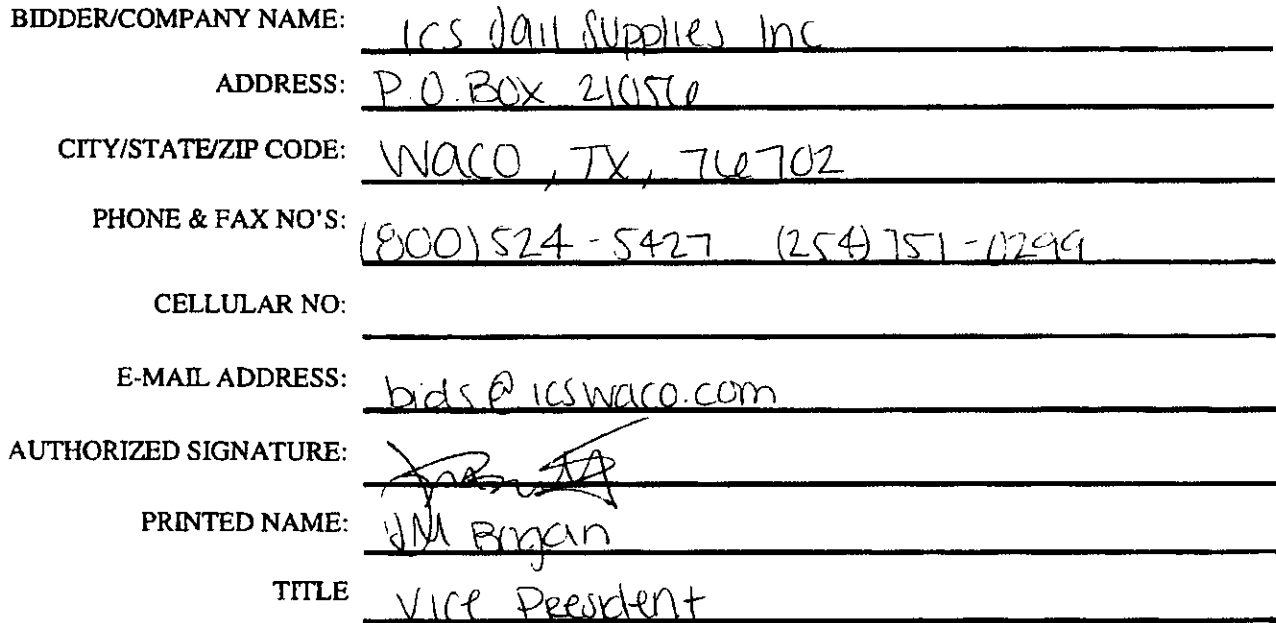 BIDDER/COMPANY NAME: ICS Jail Supplies Inc
ADDRESS: P.O. Box 21056
CITY/STATE/ZIP CODE: Waco, TX, 76702
PHONE & FAX NO'S: (800) 524-5427 (254) 751-0299
CELLULAR NO:
E-MAIL ADDRESS: bids@icswaco.com
AUTHORIZED SIGNATURE:
PRINTED NAME: JM Bogan
TITLE Vice President